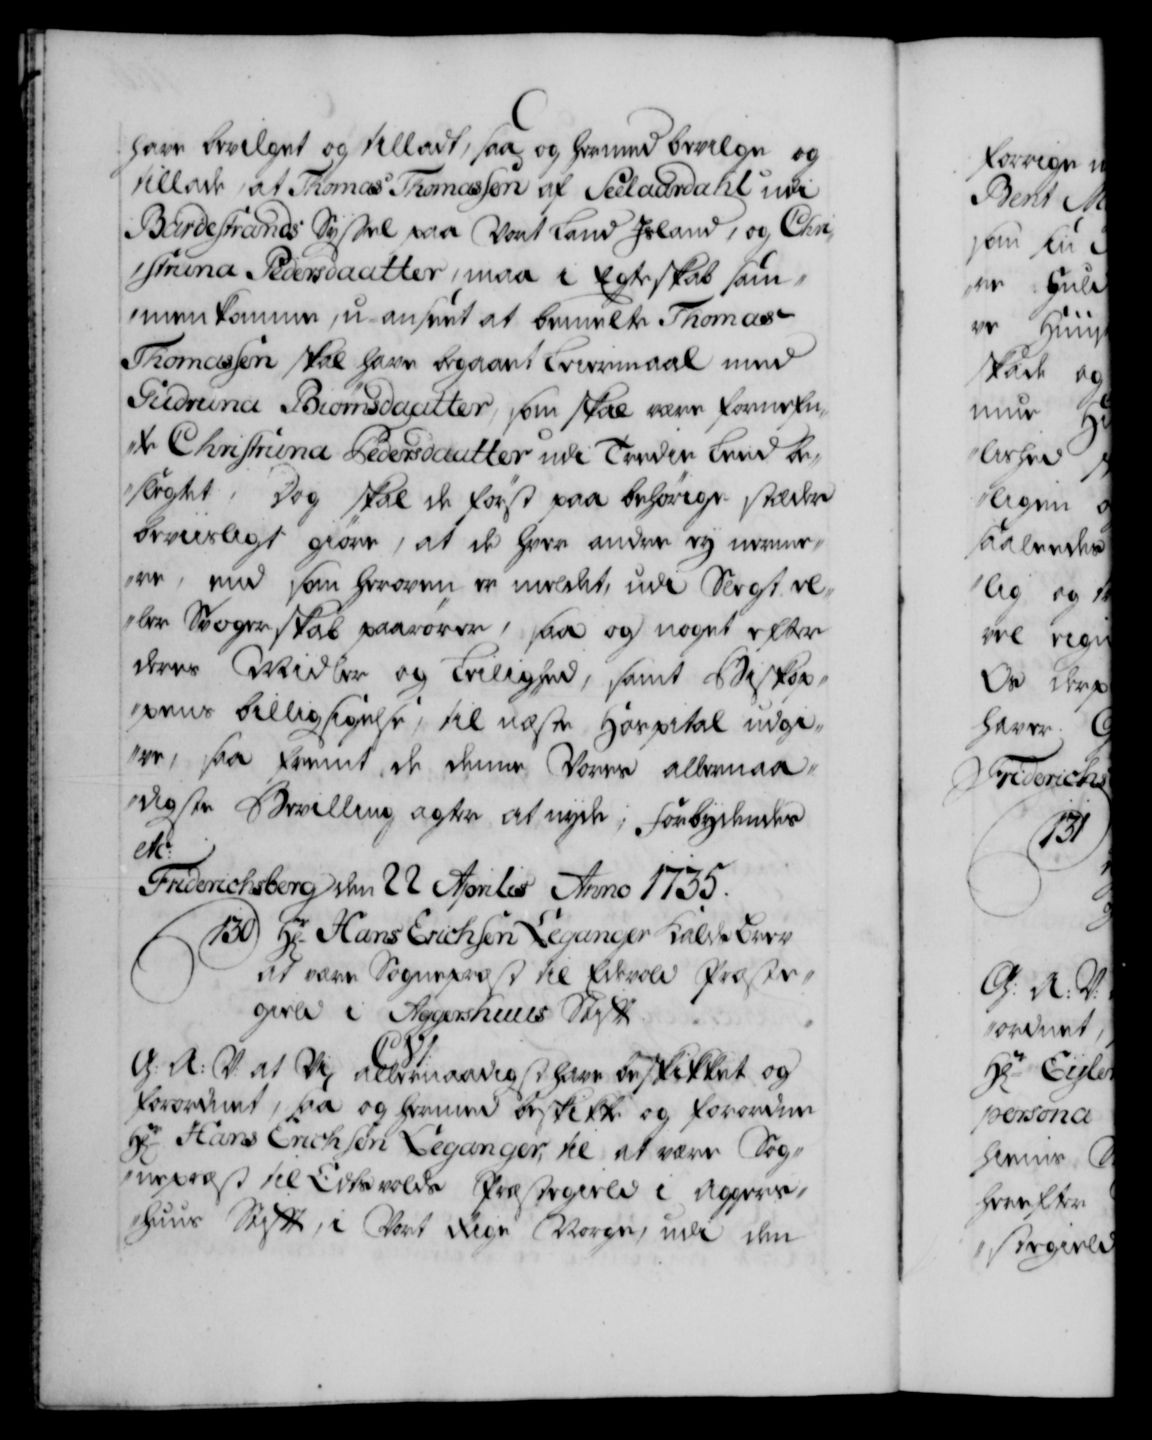 have bevilget og tilladt, saa og hermed bevilge og
tillade, at Thomas Thomassøn af Seelaurdahl udi
Bardestrands Syssel paa Vort Land Jsland, og Chri-
struna Pedersdaatter, maa i Egteskab sam-
menkomme, u-anseet at bemelte Thomas
Thomassøn skal have begaaet Leiermaal med
Gudruna Biørnsdaatter, som skal være fornefn-
te Christruna Pedersdaatter udi Tredie Leed be-
slegtet, Dog skal de først paa behörige stæder
beviisligt giöre, at de hver andre ey nerme-
re, end som heroven er meldet, udi Slegt el-
ler Svogerskab paarörer, saa og noget efter
deres Midler og Leilighed, samt Biskop-
pens billigsigelse, til næste Hospital udgi-
ve, saa fremt de denne Vores allernaa-
digste Bevilling agter at nyde; Forbydendes
etc:
Friderichsberg den 22 Aprilis Anno 1735.
130 Hr Hans Erichsøn Leganger Kalds brev
at være Sognepræst til Edsvold Præste-
gield i Aggershuus Stift
C VI
G: A: V. at Vi allernaadigst have beskikket og
forordnet, saa og hermed beskikke og forordne
Hr Hans Erichsøn Leganger, til at være Sog-
nepræst til Edsvolds Præstegield i Aggers-
huus Stift, i Vort Rige Norge, udi den
forrige
Bent
som
skade og
ligen
saaledes
lig og
vel
Os
haver
Friderichs
131
G: A: V.
ordnet,
Hr Eyler
persona
hereftter
stegield